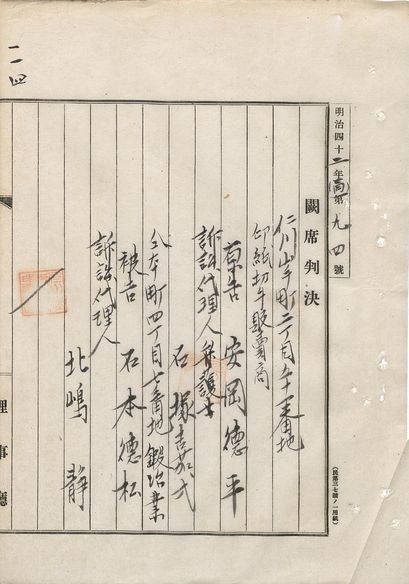 明治四十二年(高)第九四號
闕席判決
仁川山手町二丁目
印紙切手販賣商
原告 安岡德平
訴訟代理人 弁護士
石塚
仝本町四丁目七番地 鍛冶業
被告 石本德松
訴訟代理人
北嶋静
理事廳
二一四